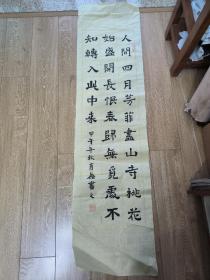 人間四月芳菲盡山寺桃花
始盛開長恨春歸無覓處不
知轉入此中来
甲午年秋月